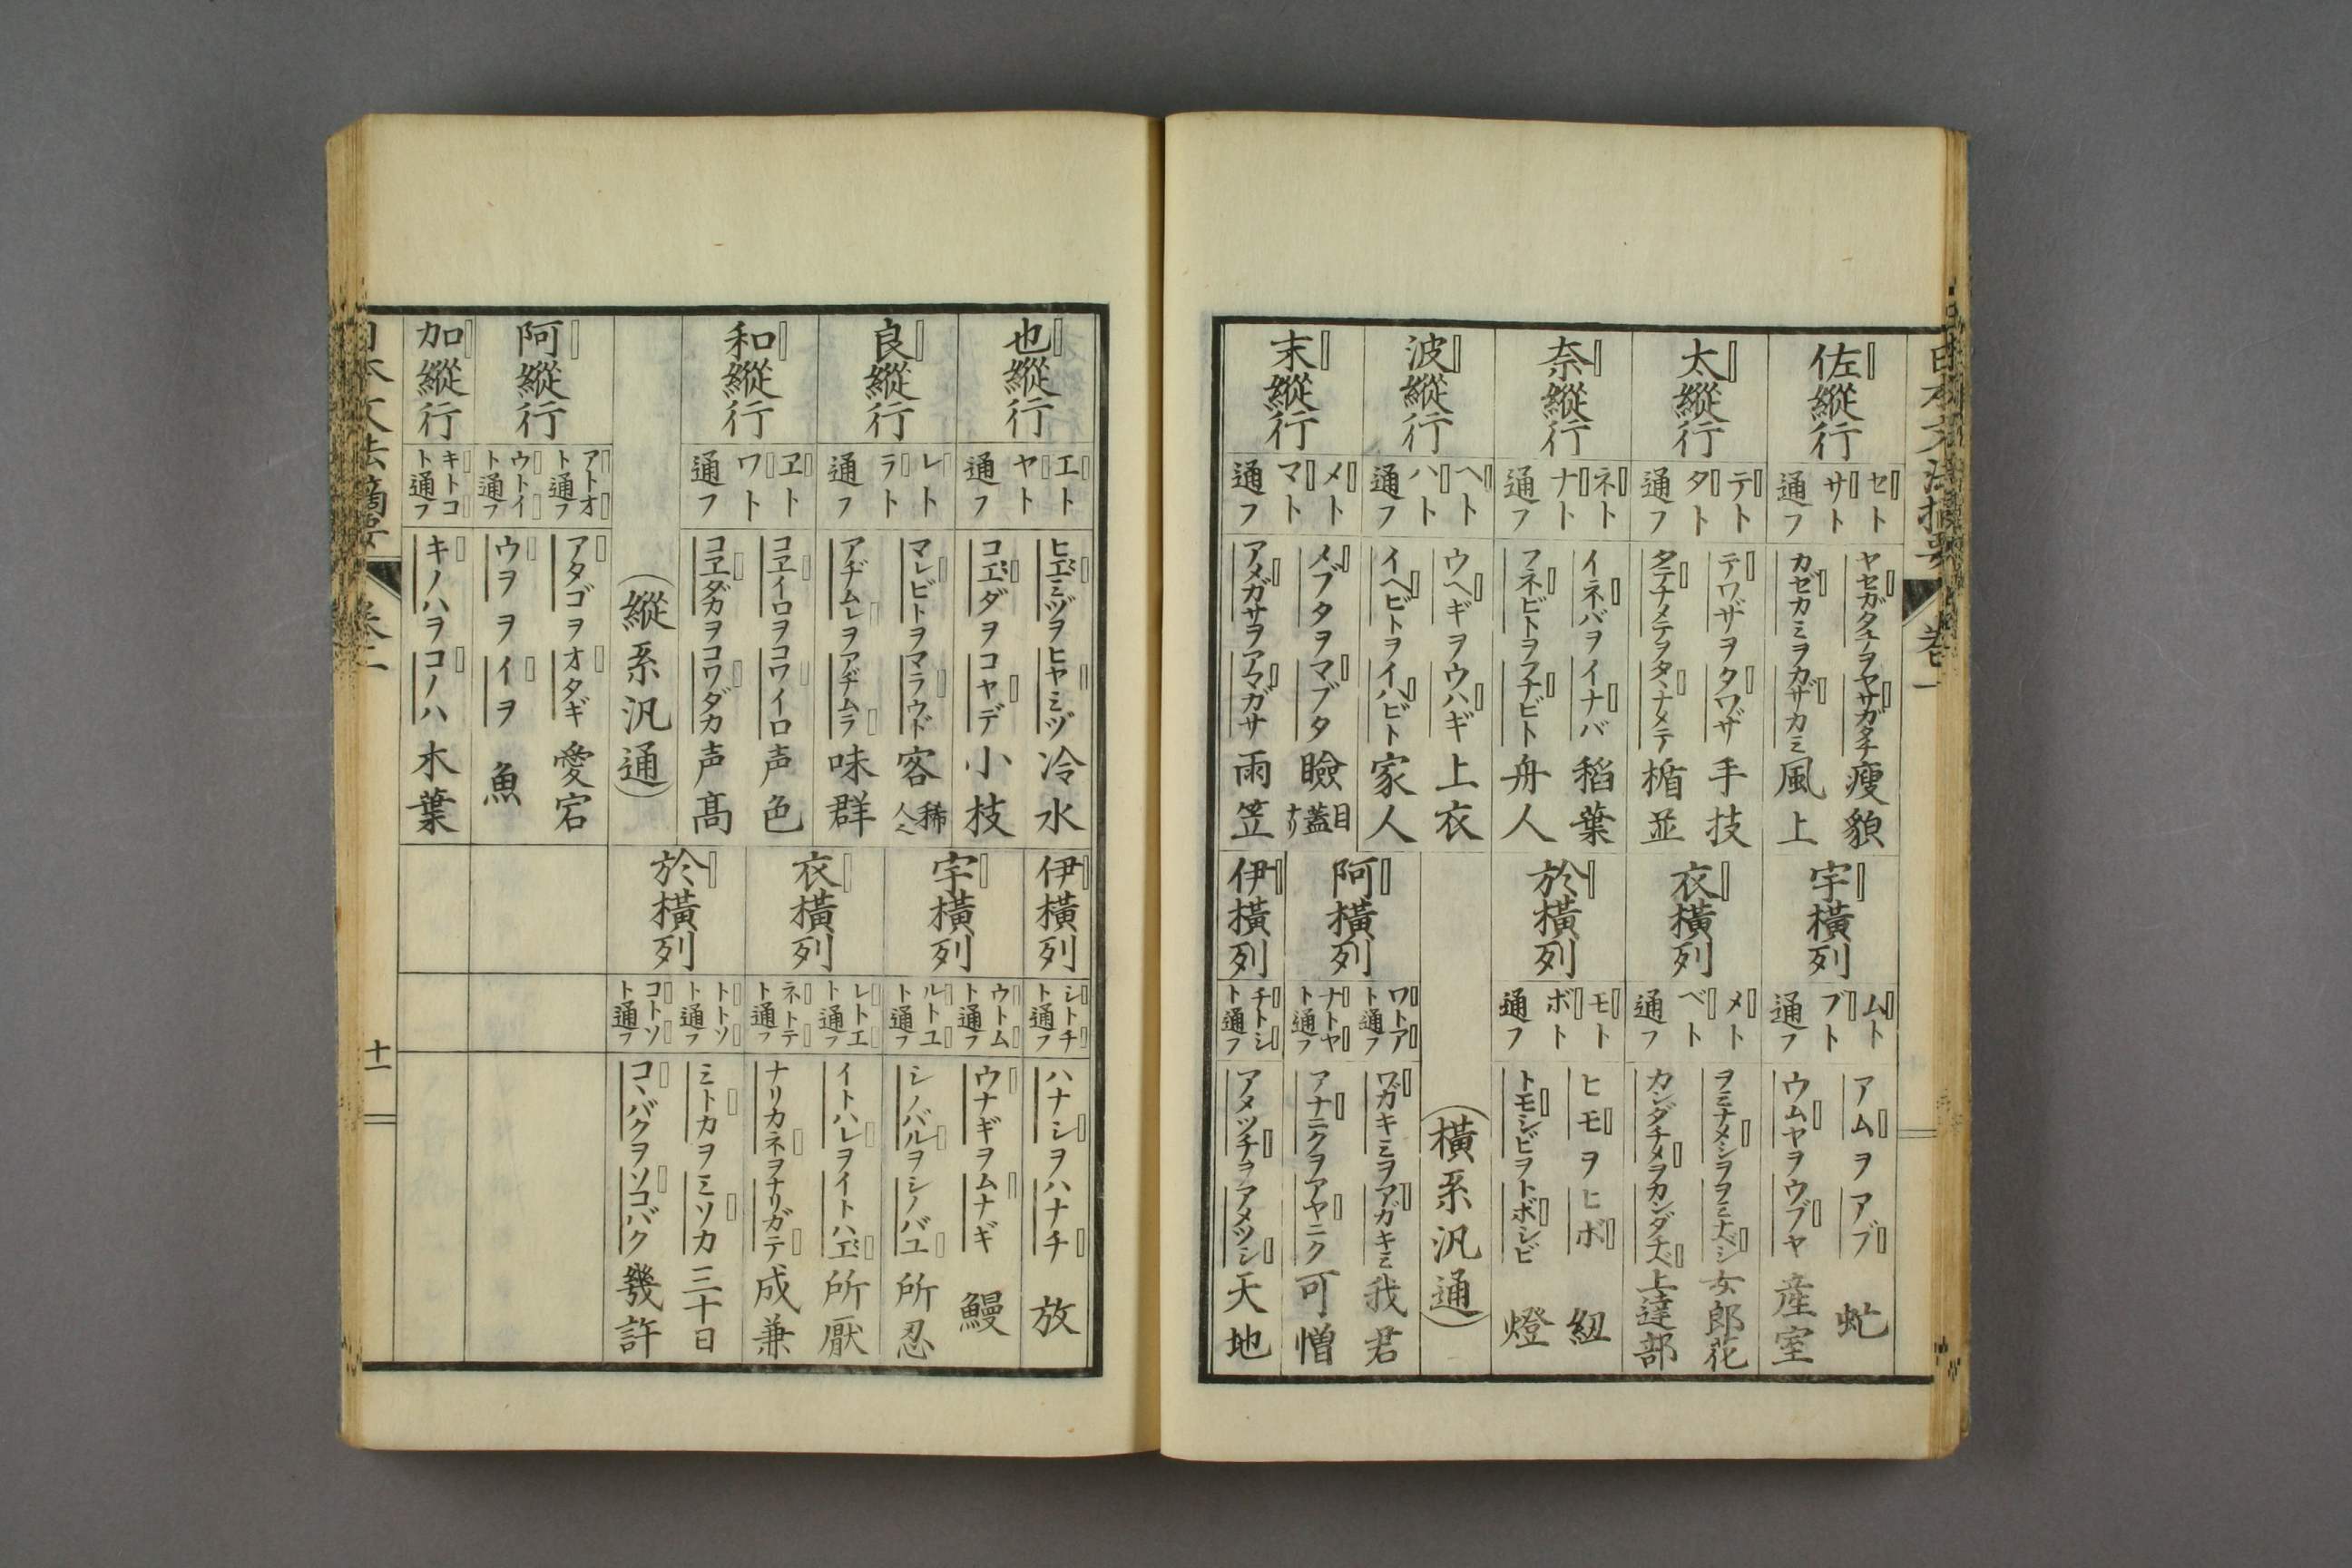 佐縦行
セト
サト
通フ
ヤセガタチヲヤサガタチ 瘦貌
カゼカミヲカザカミ 風上
太縦行
テト
タト
通フ
テワザヲタワザ 手技
タテナメテヲタヽナメテ 楯並
奈縦行
ネト
ナト
通フ
イネバヲイナバ 稻葉
フネビトヲフナビト 舟人
波縦行
ヘト
ハト
通フ
ウヘギヲウハギ 上衣
イヘビトヲイハビト 家人
末縦行
メト
マト
通フ
メブタヲマブタ 瞼 目蓋ナリ
アメガサヲアマガサ 雨笠
宇橫列
ムト
ブト
通フ
アムヲアブ 虻
ウムヤヲウブヤ 産室
衣橫列
メト
ベト
通フ
ヲミナメシヲヲミナベシ 女郎花
カンダチメヲカンダチベ 上達部
於橫列
モト
ボト
通フ
ヒモヲヒボ 紐
トモシビヲトボシビ 燈
(橫系汎通)
阿橫列
ワトア
ト通フ
ワガキミヲアガキミ 我君
ナトヤ
ト通フ
アナニクヲアヤニク 可憎
伊橫列
チトシ
ト通フ
アメツチヲアメツシ 天地
也縦行
エト
ヤト
通フ
ヒエミヅヲヒヤミヅ 冷水
コエダヲコヤデ 小枝
良縦行
レト
ラト
通フ
マレビトヲマラウド 客 稀人
アヂムレヲアヂムラ 味群
和縦行
ヱト
ワト
通フ
コヱイロヲコワイロ 声色
コヱダカヲコワダカ 声髙
(縦系汎通)
阿縦行
アトオ
ト通フ
アタゴヲオタギ 愛宕
ウトイ
ト通フ
ウヲヲイヲ 魚
加縦行
キトコ
ト通フ
キノハヲコノハ 木葉
伊橫列
シトチ
ト通フ
ハナシヲハナチ 放
宇橫列
ウトム
ト通フ
ウナギヲムナギ 鰻
ルトユ
ト通フ
シノバルヲシノバユ 所忍
衣橫列
レトエ
ト通フ
イトハレヲイトハエ 所厭
ネトテ
ト通フ
ナリカネヲナリガテ 成兼
於橫列
トトソ
ト通フ
ミトカヲミソカ 三十日
コトソ
ト通フ
コヽバクヲソコバク 幾許
日本文法摘要
卷一
十一